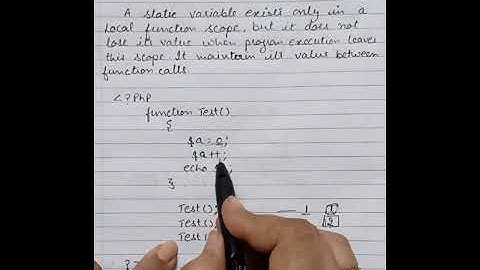 A static variable exists only in a
local function scope, but it does not
lose its value when program execution leaves
this scope It maintain its value between
function calls
<?PHP
function Test()
{
$a = 0;
$a++;
echo
}
Test(); 1 1
Test(); 2
Test(